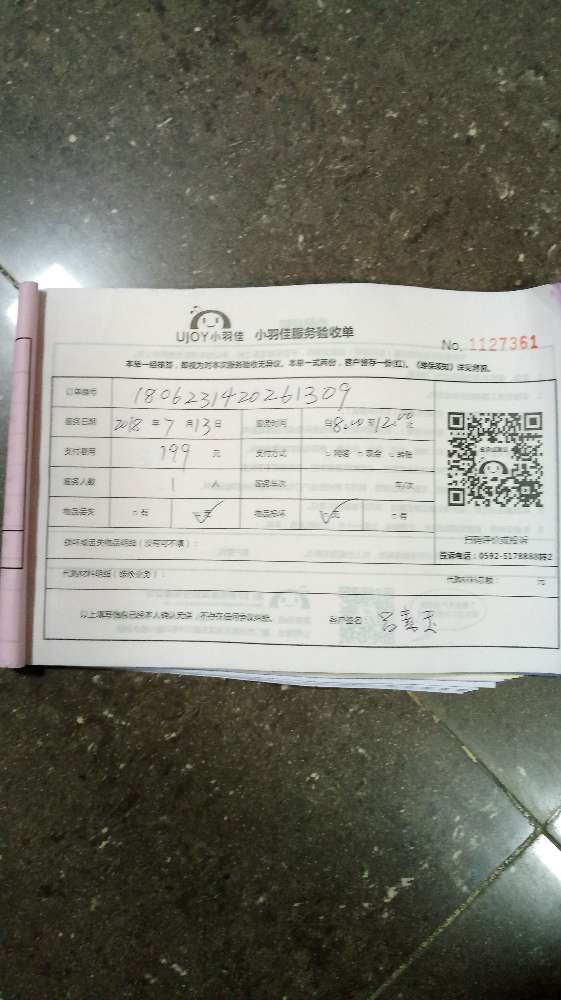 UJOY小羽佳 小羽佳服务验收单
No. 1127361
本单一经签署，即视为对本次服务验收无异议。本单一式两份，客户留存一份(红)。《维保须知》详见背面。
订单编号 1806231420261309
服务日期 2018 年 7 月 13 日 服务时间 自 8:00 至 12:00 止
支付费用 199 元 支付方式 □ 网络 □ 现金 □ 转账
服务人数 1 人 服务车次 车/次
物品丢失 □ 有 □ 无 物品损坏 □ 无 □ 有
扫码评价或投诉
投诉电话：0592-5178888转2
损坏或丢失物品明细（没有可不填）：
代购材料明细（维修业务）： 代购材料总额： 元
以上填写信息已经本人确认无误，不存在任何争议纠纷。 客户签名